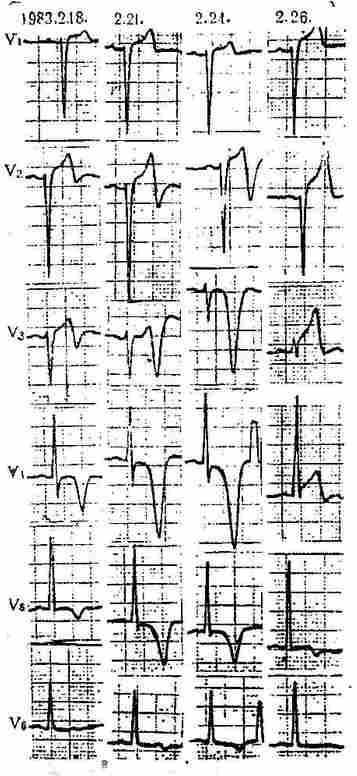 1983.2.18. 2.21. 2.24. 2.26.
V1
V2
V3
V1
V5
V6